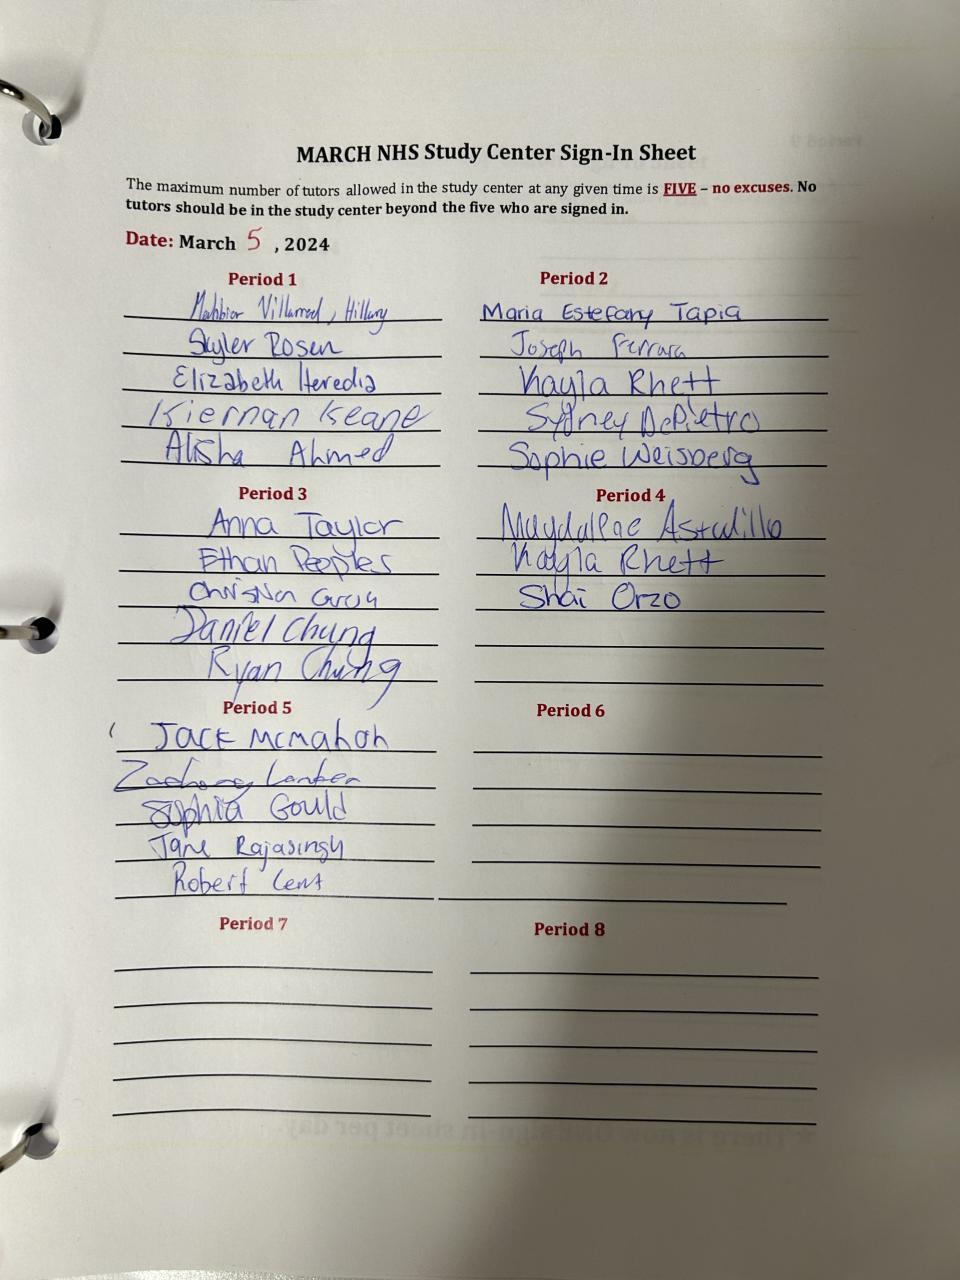 MARCH NHS Study Center Sign-In Sheet
The maximum number of tutors allowed in the study center at any given time is FIVE – no excuses. No
tutors should be in the study center beyond the five who are signed in.
Date: March 5, 2024
Period 1
Hillary
Skyler Rosen
Elizabeth Heredia
Kiernan Keane
Alisha Ahmed
Period 2
Maria Estefany Tapia
Joseph Ferrara
Kayla Rhett
Sydney DePietro
Sophie Weisberg
Period 3
Anna Taylor
Ethan Peoples
Daniel Chung
Ryan Chung
Period 4
Kayla Rhett
Shai Orzo
Period 5
Jack McMahon
Zachary
Sophia Gould
Jane Rajasingh
Robert Lent
Period 6
Period 7
Period 8